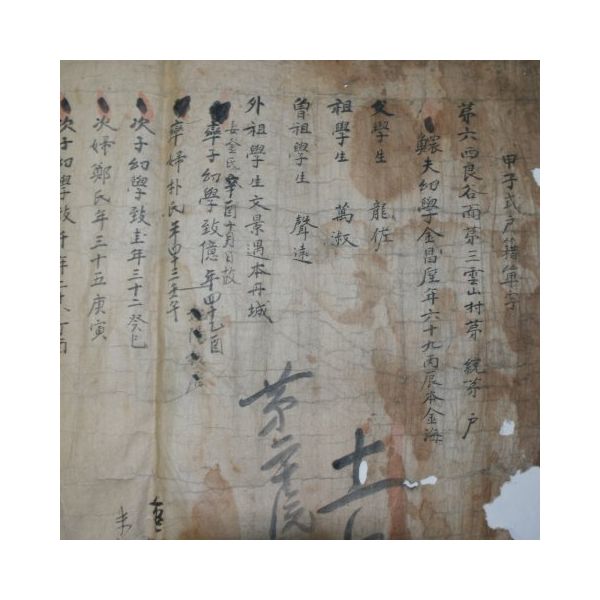 甲子式戶籍單子
第六西良谷面第三雲山村第 統第 戶
鰥夫幼學金昌 年六十九丙辰本金海
父學生 龍佐
祖學生 萬淑
曾祖學生 聲遠
外祖學生文景遇本丹城
妻金氏辛酉十月日故
率子幼學致億年四十乙酉
率婦朴氏年四十三壬午
次子幼學致圭年三十二癸巳
次婦鄭氏年三十五庚寅
次子幼學致
第六